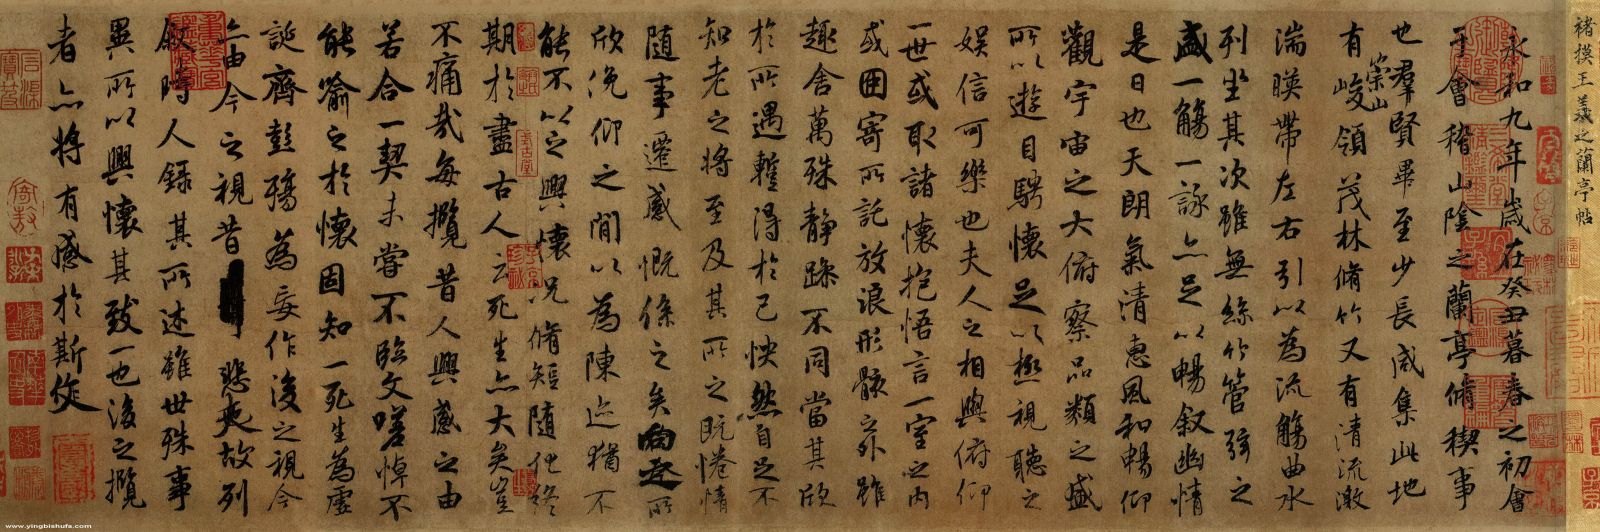 褚摸王羲之蘭亭帖
永和九年歲在癸丑暮春之初會
于會稽山陰之蘭亭脩稧事
也羣賢畢至少長咸集此地
有崇山峻領茂林脩竹又有清流激
湍暎帶左右引以為流觴曲水
列坐其次雖無絲竹管弦之
盛一觴一詠亦足以暢敘幽情
是日也天朗氣清惠風和暢仰
觀宇宙之大俯察品類之盛
所以遊目騁懷足以極視聽之
娛信可樂也夫人之相與俯仰
一世或取諸懷抱悟言一室之內
或因寄所託放浪形骸之外雖
趣舍萬殊靜躁不同當其欣
於所遇蹔得於己怏然自足不
知老之將至及其所之既惓情
隨事遷感慨係之矣向之所
欣俛仰之閒以為陳迹猶不
能不以之興懷況脩短隨化終
期於盡古人云死生亦大矣豈
不痛哉每攬昔人興感之由
若合一契未嘗不臨文嗟悼不
能喻之於懷固知一死生為虛
誕齊彭殤為妄作後之視今
亦由今之視昔悲夫故列
敘時人錄其所述雖世殊事
異所以興懷其致一也後之攬
者亦將有感於斯作
www.yingbishufa.com